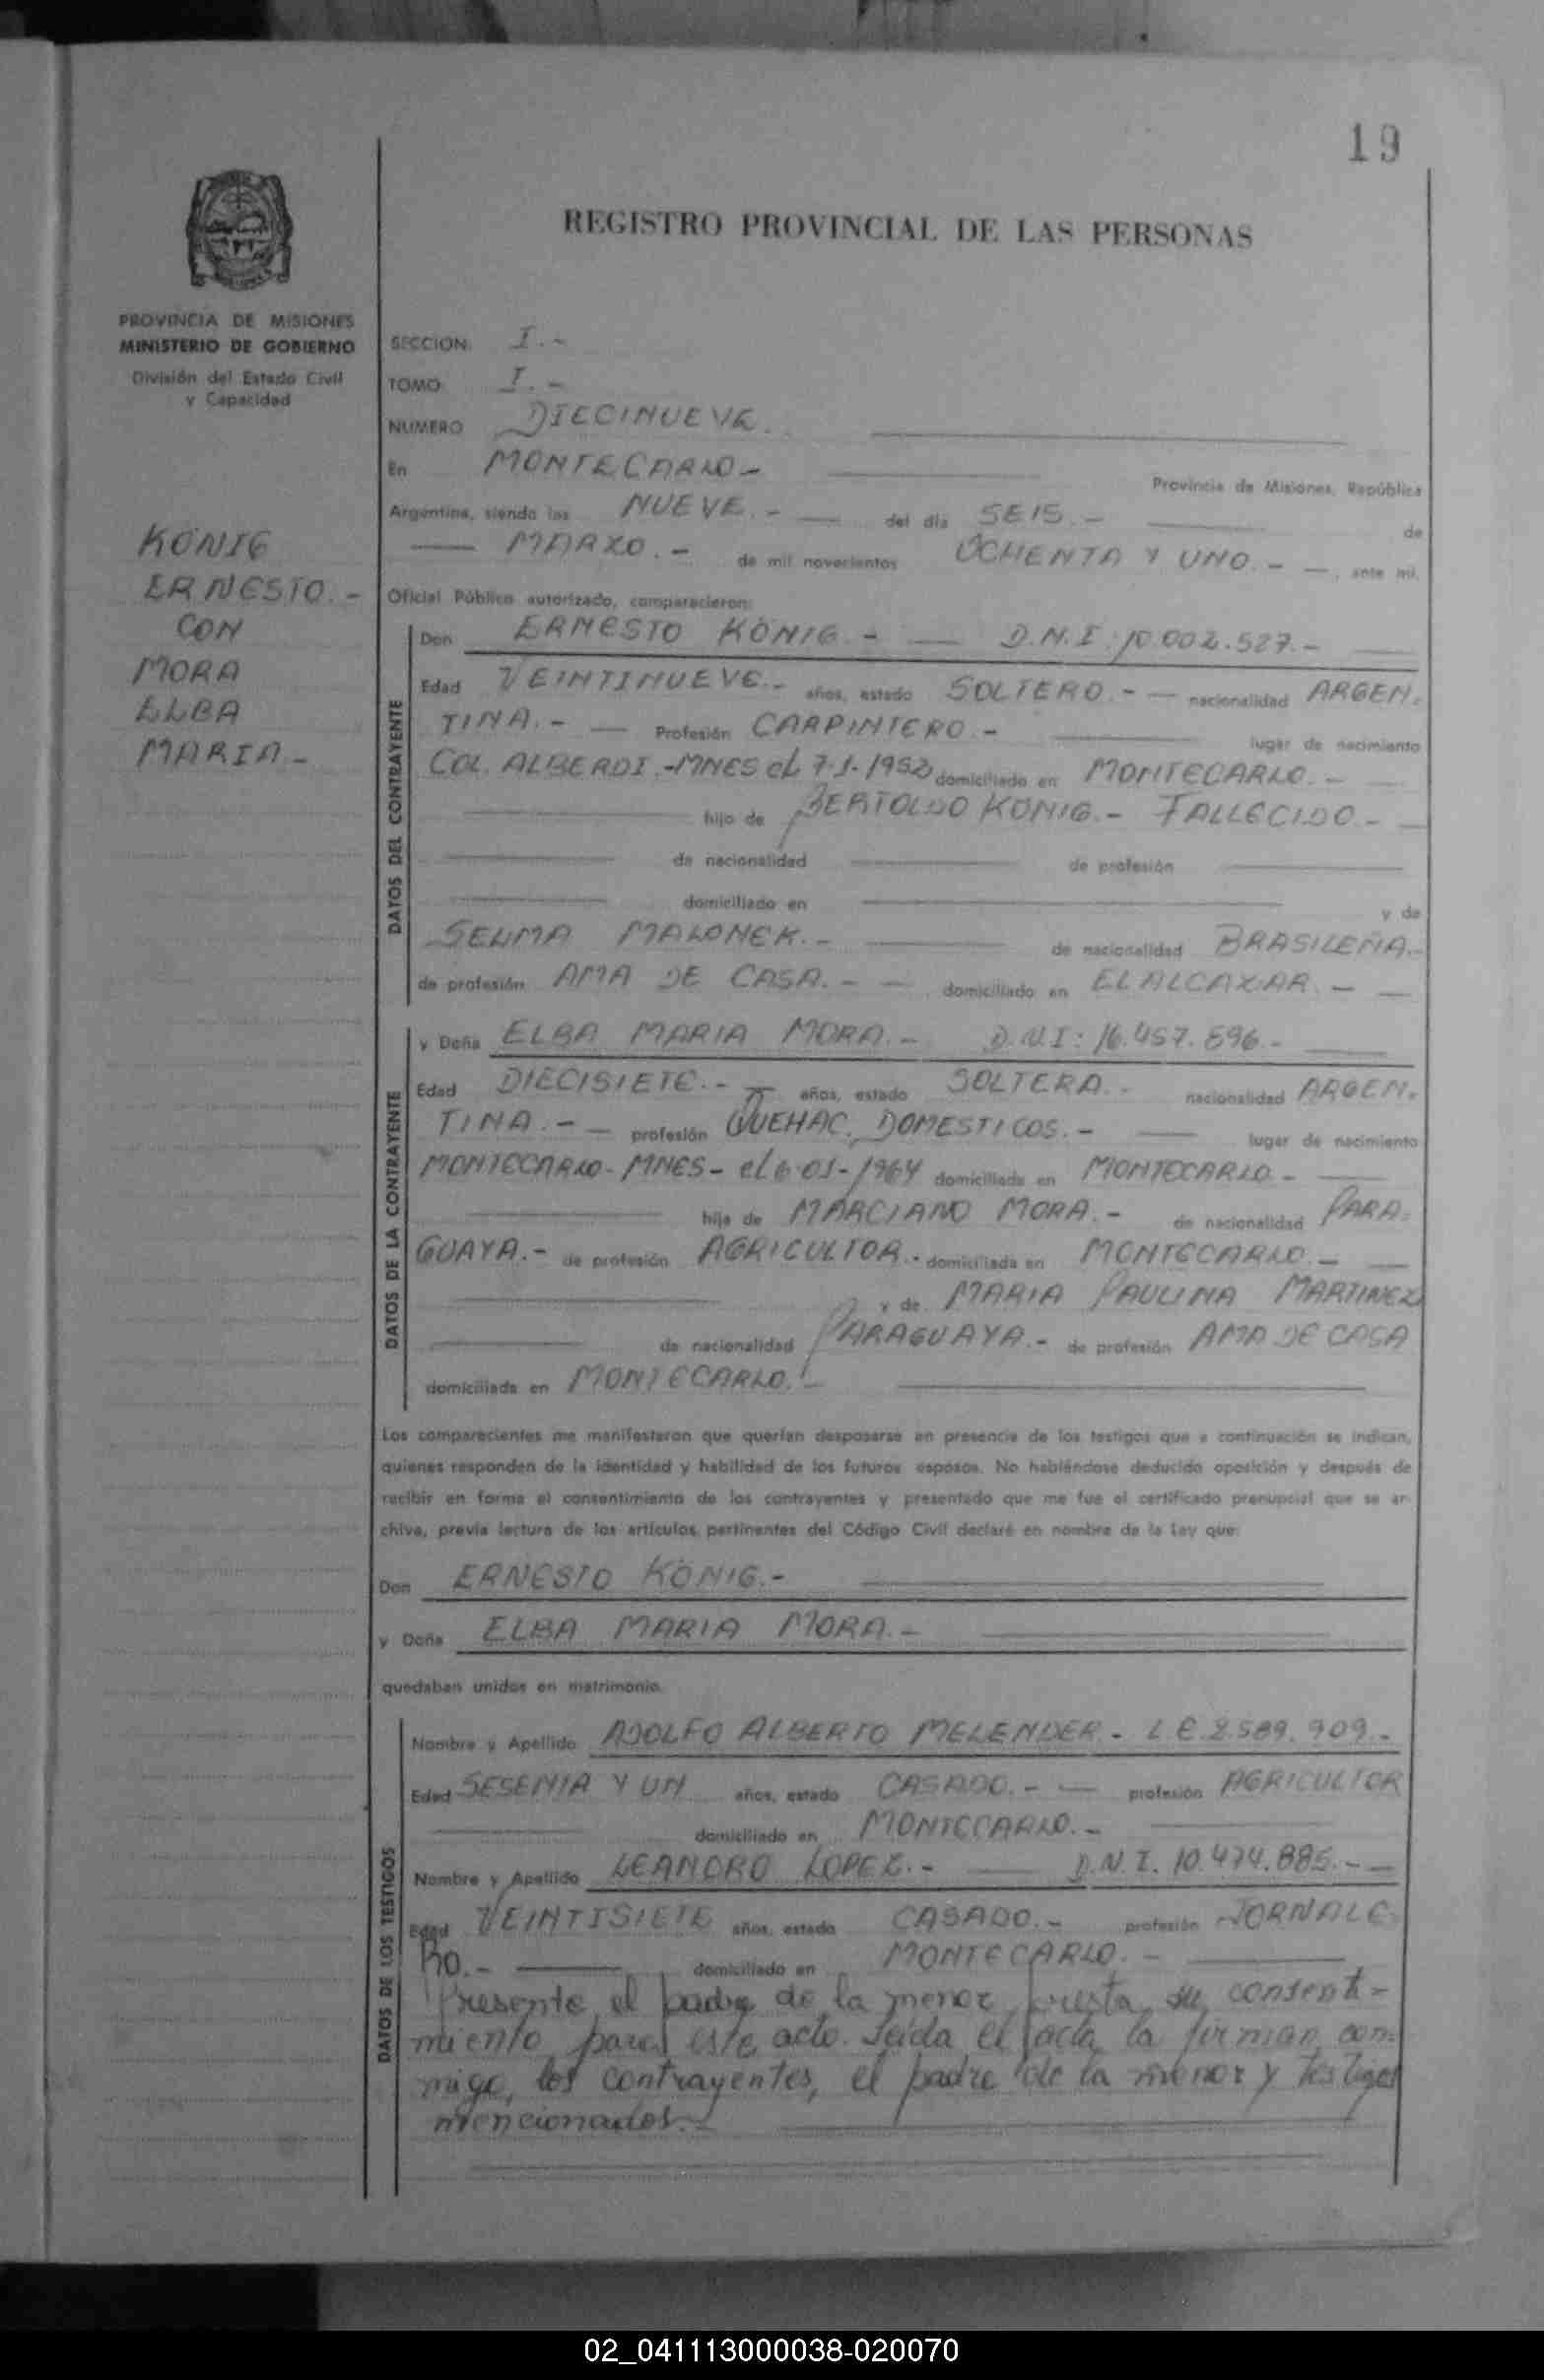 19
REGISTRO PROVINCIAL DE LAS PERSONAS
PROVINCIA DE MISIONES
MINISTERIO DE GOBIERNO
División del Estado Civil
y Capacidad
KÖNIG
ERNESTO.-
CON
MORA
ELBA
MARIA.-
SECCION I.-
TOMO I.-
NUMERO DIECINUEVE.
En MONTECARLO.- Provincia de Misiones, República
Argentina, siendo las NUEVE.- del día SEIS.- de
MARZO.- de mil novecientos OCHENTA Y UNO.- , ante mí,
Oficial Público autorizado, comparecieron:
DATOS DEL CONTRAYENTE
Don ERNESTO KÖNIG.- D.N.I: 10.002.527.-
Edad VEINTINUEVE.- años, estado SOLTERO.- nacionalidad ARGEN.
TINA.- Profesión CARPINTERO.- lugar de nacimiento
COL. ALBERDI.-MNES el 7-1-1952 domiciliado en MONTECARLO.-
hijo de BERTOLDO KÖNIG.- FALLECIDO.-
de nacionalidad de profesión
domiciliado en y de
SELMA MALONEK.- de nacionalidad BRASILEÑA.-
de profesión AMA DE CASA.- domiciliado en EL ALCAZAR.-
DATOS DE LA CONTRAYENTE
y Doña ELBA MARIA MORA.- D.N.I: 16.457.596.-
Edad DIECISIETE.- años, estado SOLTERA.- nacionalidad ARGEN.
TINA.- profesión QUEHAC. DOMESTICOS.- lugar de nacimiento
MONTECARLO-MNES- el 6-01-1964 domiciliada en MONTECARLO.-
hija de MARCIANO MORA.- de nacionalidad PARA.
GUAYA.- de profesión AGRICULTOR.- domiciliada en MONTECARLO.-
y de MARIA PAULINA MARTINEZ
de nacionalidad PARAGUAYA.- de profesión AMA DE CASA
domiciliada en MONTECARLO.-
Los comparecientes me manifestaron que querían desposarse en presencia de los testigos que a continuación se indican,
quienes responden de la identidad y habilidad de los futuros esposos. No habiéndose deducido oposición y después de
recibir en forma el consentimiento de los contrayentes y presentado que me fue el certificado prenupcial que se ar-
chiva, previa lectura de los artículos pertinentes del Código Civil declaré en nombre de la Ley que:
Don ERNESTO KÖNIG.-
y Doña ELBA MARIA MORA.-
quedaban unidos en matrimonio.
DATOS DE LOS TESTIGOS
Nombre y Apellido ADOLFO ALBERTO MELENDER.- L.E.2.589.909.-
Edad SESENTA Y UN años, estado CASADO.- profesión AGRICULTOR
domiciliado en MONTECARLO.-
Nombre y Apellido LEANDRO LOPEZ.- D.N.I. 10.474.885.-
Edad VEINTISIETE años, estado CASADO.- profesión JORNALE-
RO.- domiciliado en MONTECARLO.-
Presente el padre de la menor, presta su consenti-
miento para este acto. Leída el acta la firman con-
migo, los contrayentes, el padre de la menor y testigos
mencionados.-
02_041113000038-020070